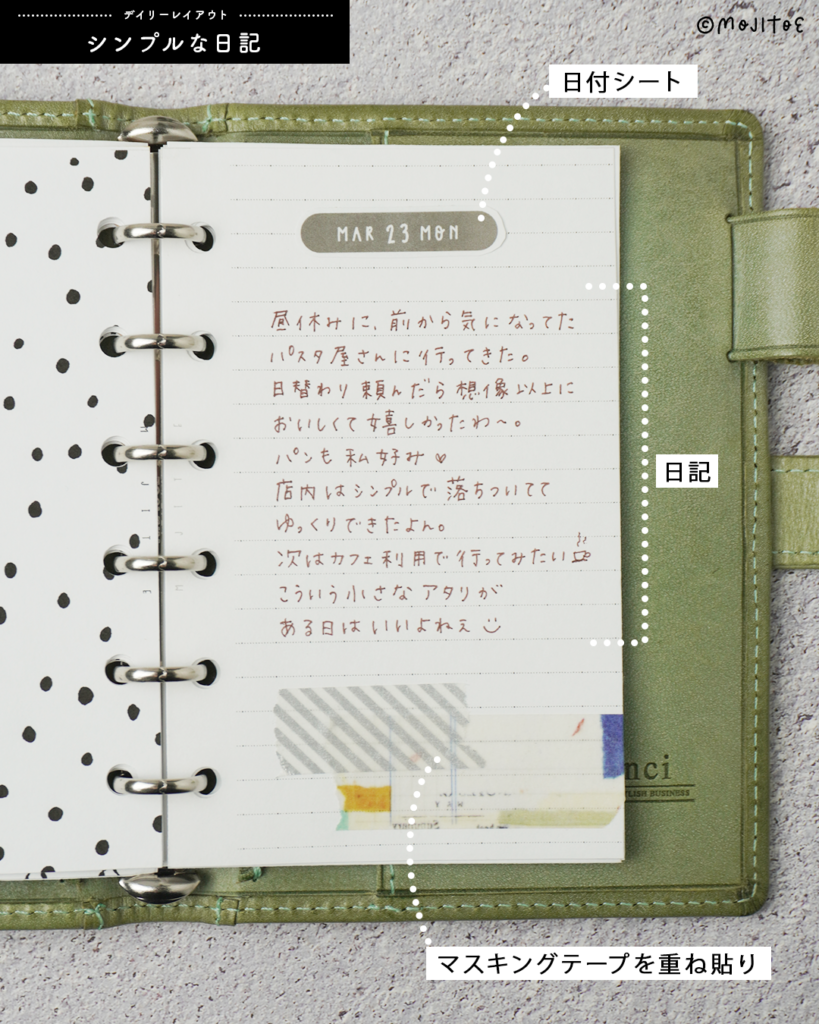 デイリーレイアウト
シンプルな日記
©MOJITOE
日付シート
MAR 23 MON
昼休みに、前から気になってた
パスタ屋さんに行ってきた。
日替わり頼んだら想像以上に
おいしくて嬉しかったわ〜。
パンも私好み♥
店内はシンプルで落ちついてて
ゆっくりできたよん。
次はカフェ利用で行ってみたい
こういう小さなアタリが
ある日はいいよねぇ
日記
nci
LISH BUSINESS
マスキングテープを重ね貼り